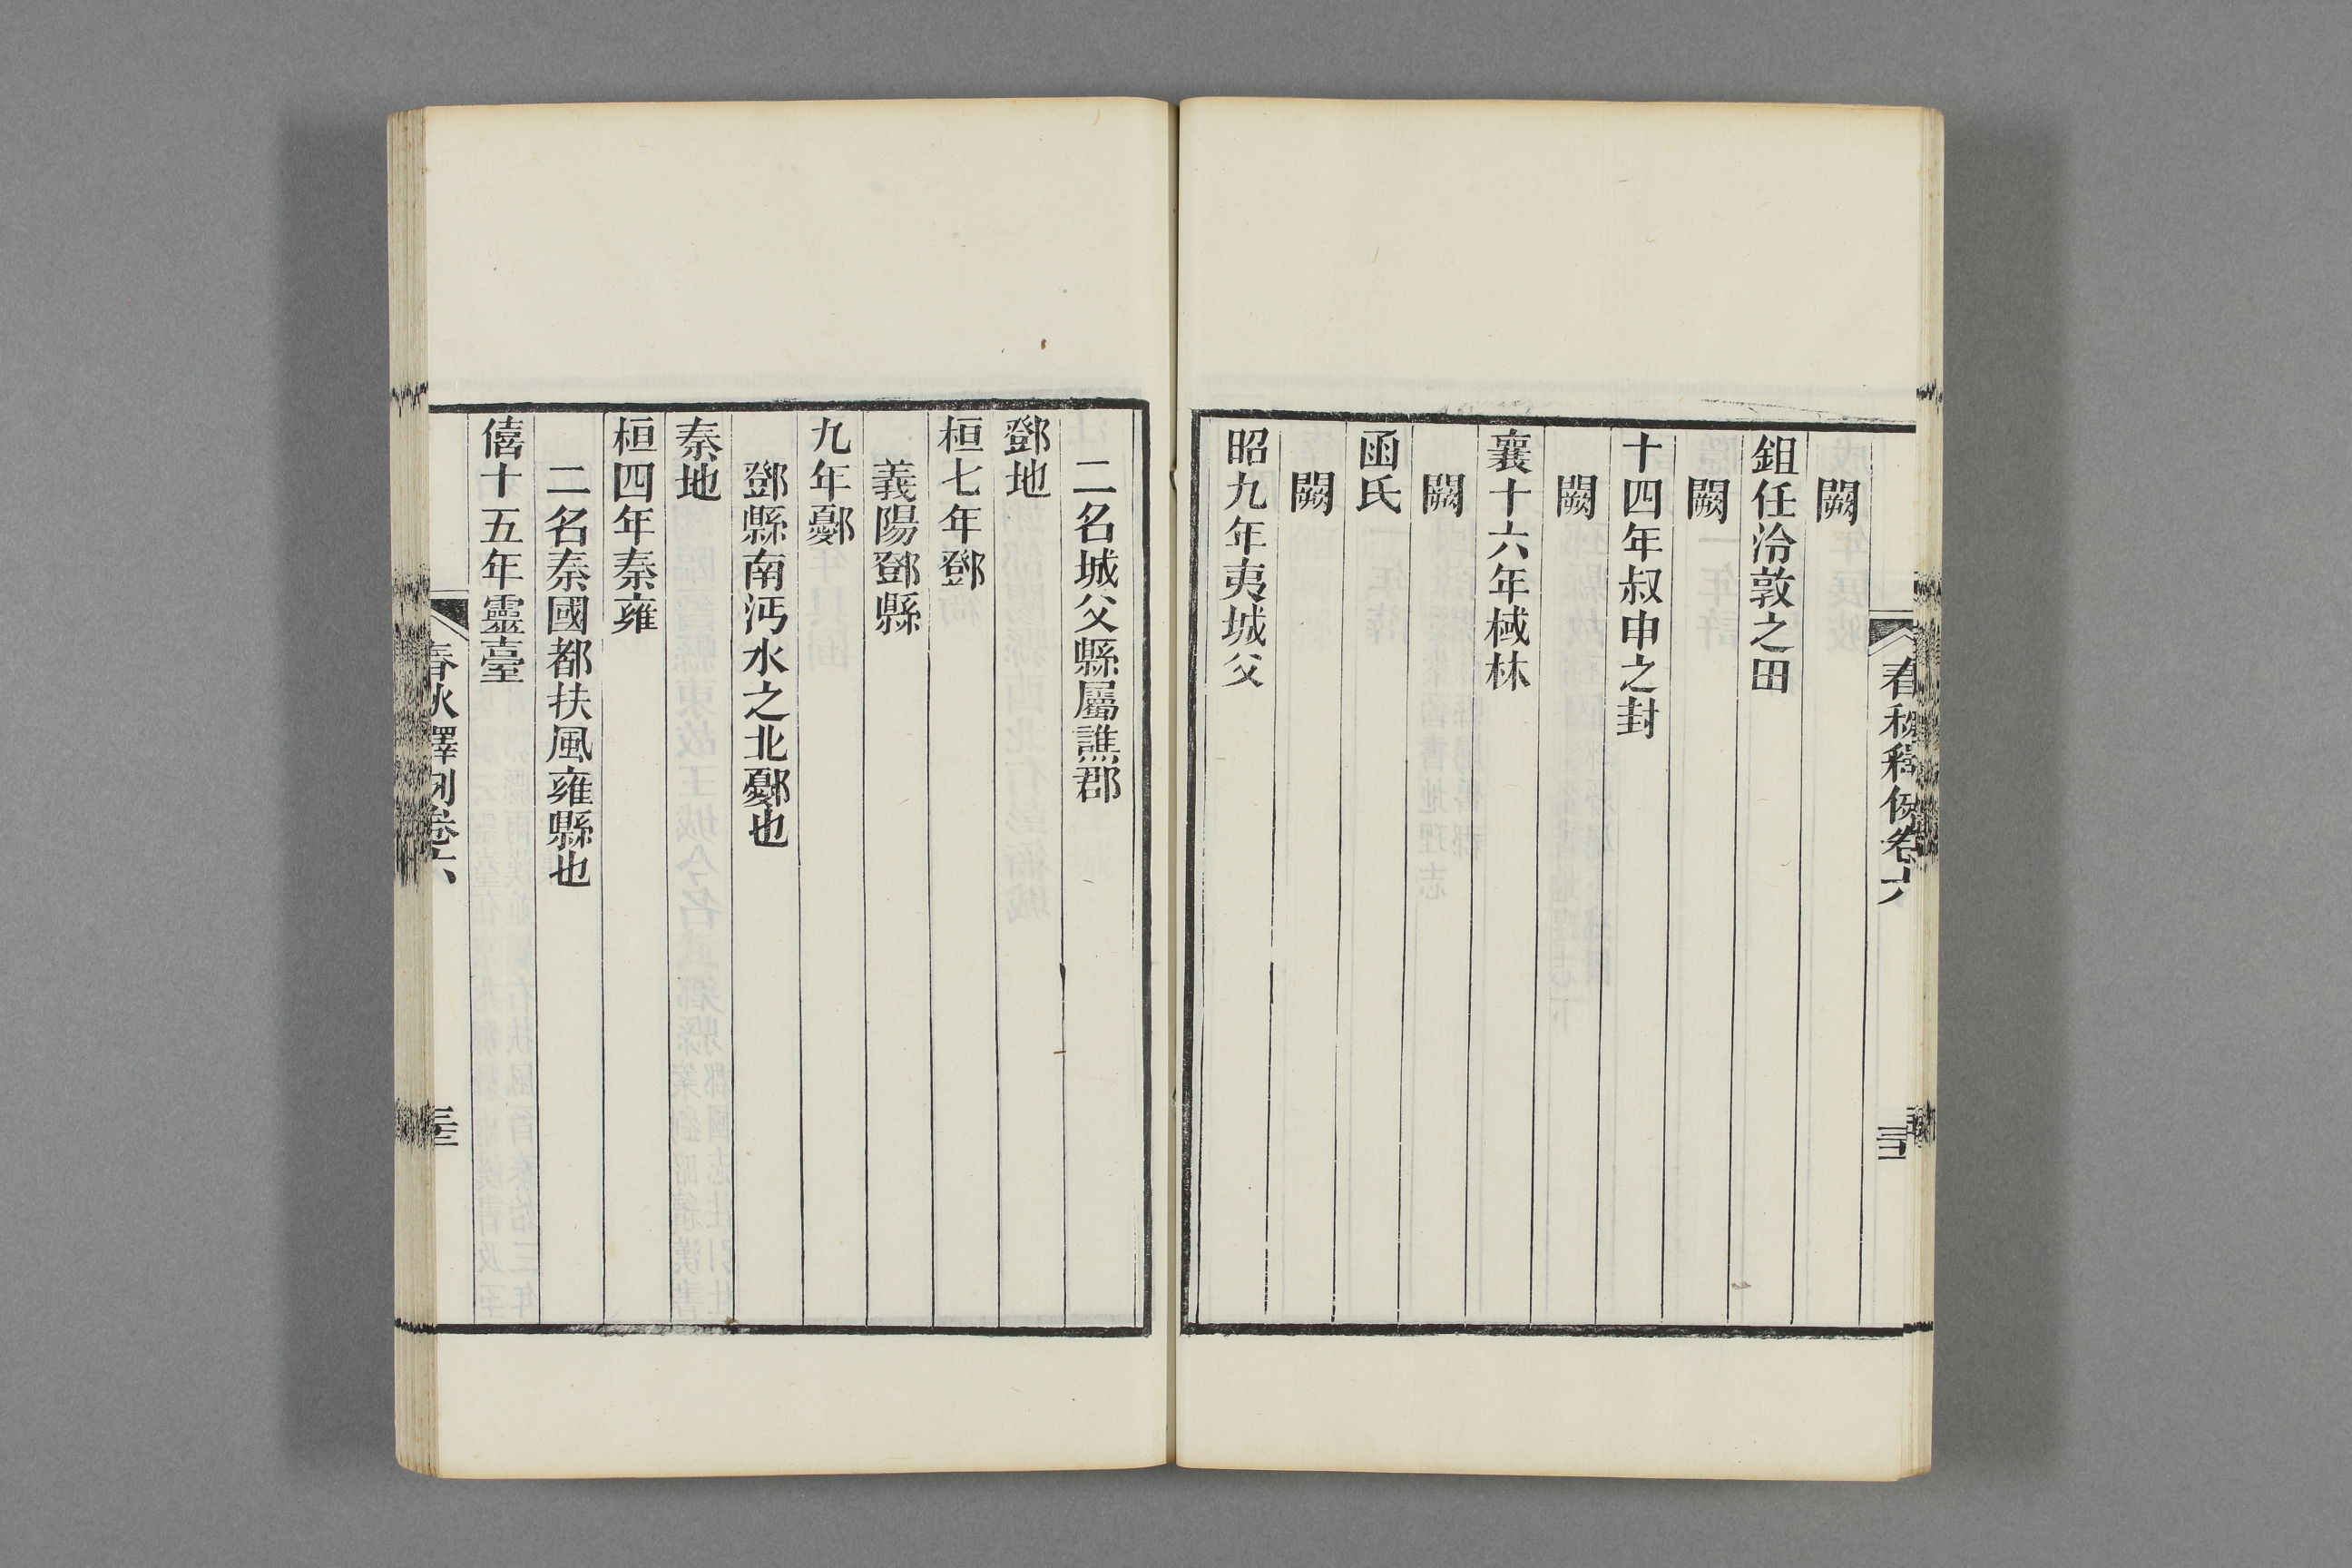 闕
鉏任泠敦之田
闕
十四年叔申之封
闕
襄十六年棫林
闕
函氏
闕
昭九年夷城父
二名城父縣屬譙郡
鄧地
桓七年鄧
義陽鄧縣
九年鄾
鄧縣南沔水之北鄾也
秦地
桓四年秦雍
二名秦國都扶風雍縣也
僖十五年靈臺
春秋釋例卷六